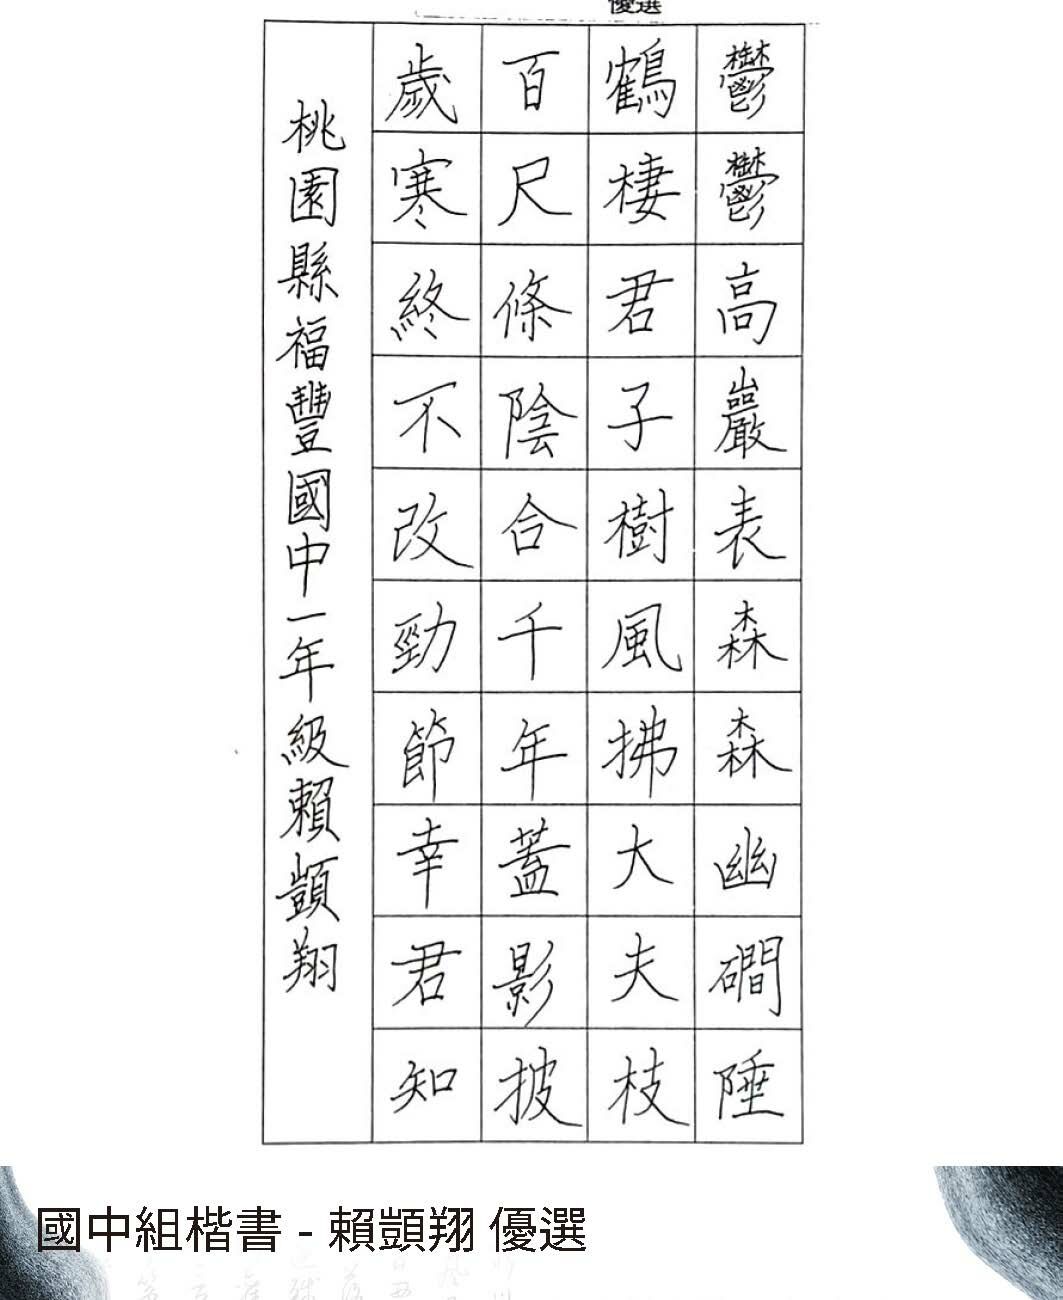 優選
鬱鬱高巖表森森幽磵陲
鶴棲君子樹風拂大夫枝
百尺條陰合千年蓋影披
歲寒終不改勁節幸君知
桃園縣福豐國中一年級賴顗翔
國中組楷書 - 賴顗翔 優選